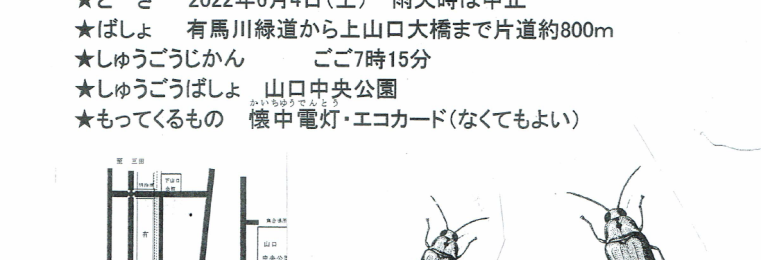 ★と　き　2022年6月4日(土)　雨天時は中止
★ばしょ　有馬川緑道から上山口大橋まで片道約800m
★しゅうごうじかん　ごご7時15分
★しゅうごうばしょ　山口中央公園
かいちゅうでんとう
★もってくるもの　懐中電灯・エコカード(なくてもよい)
至　三田
下山口
有
集合場所
山口
中央公園